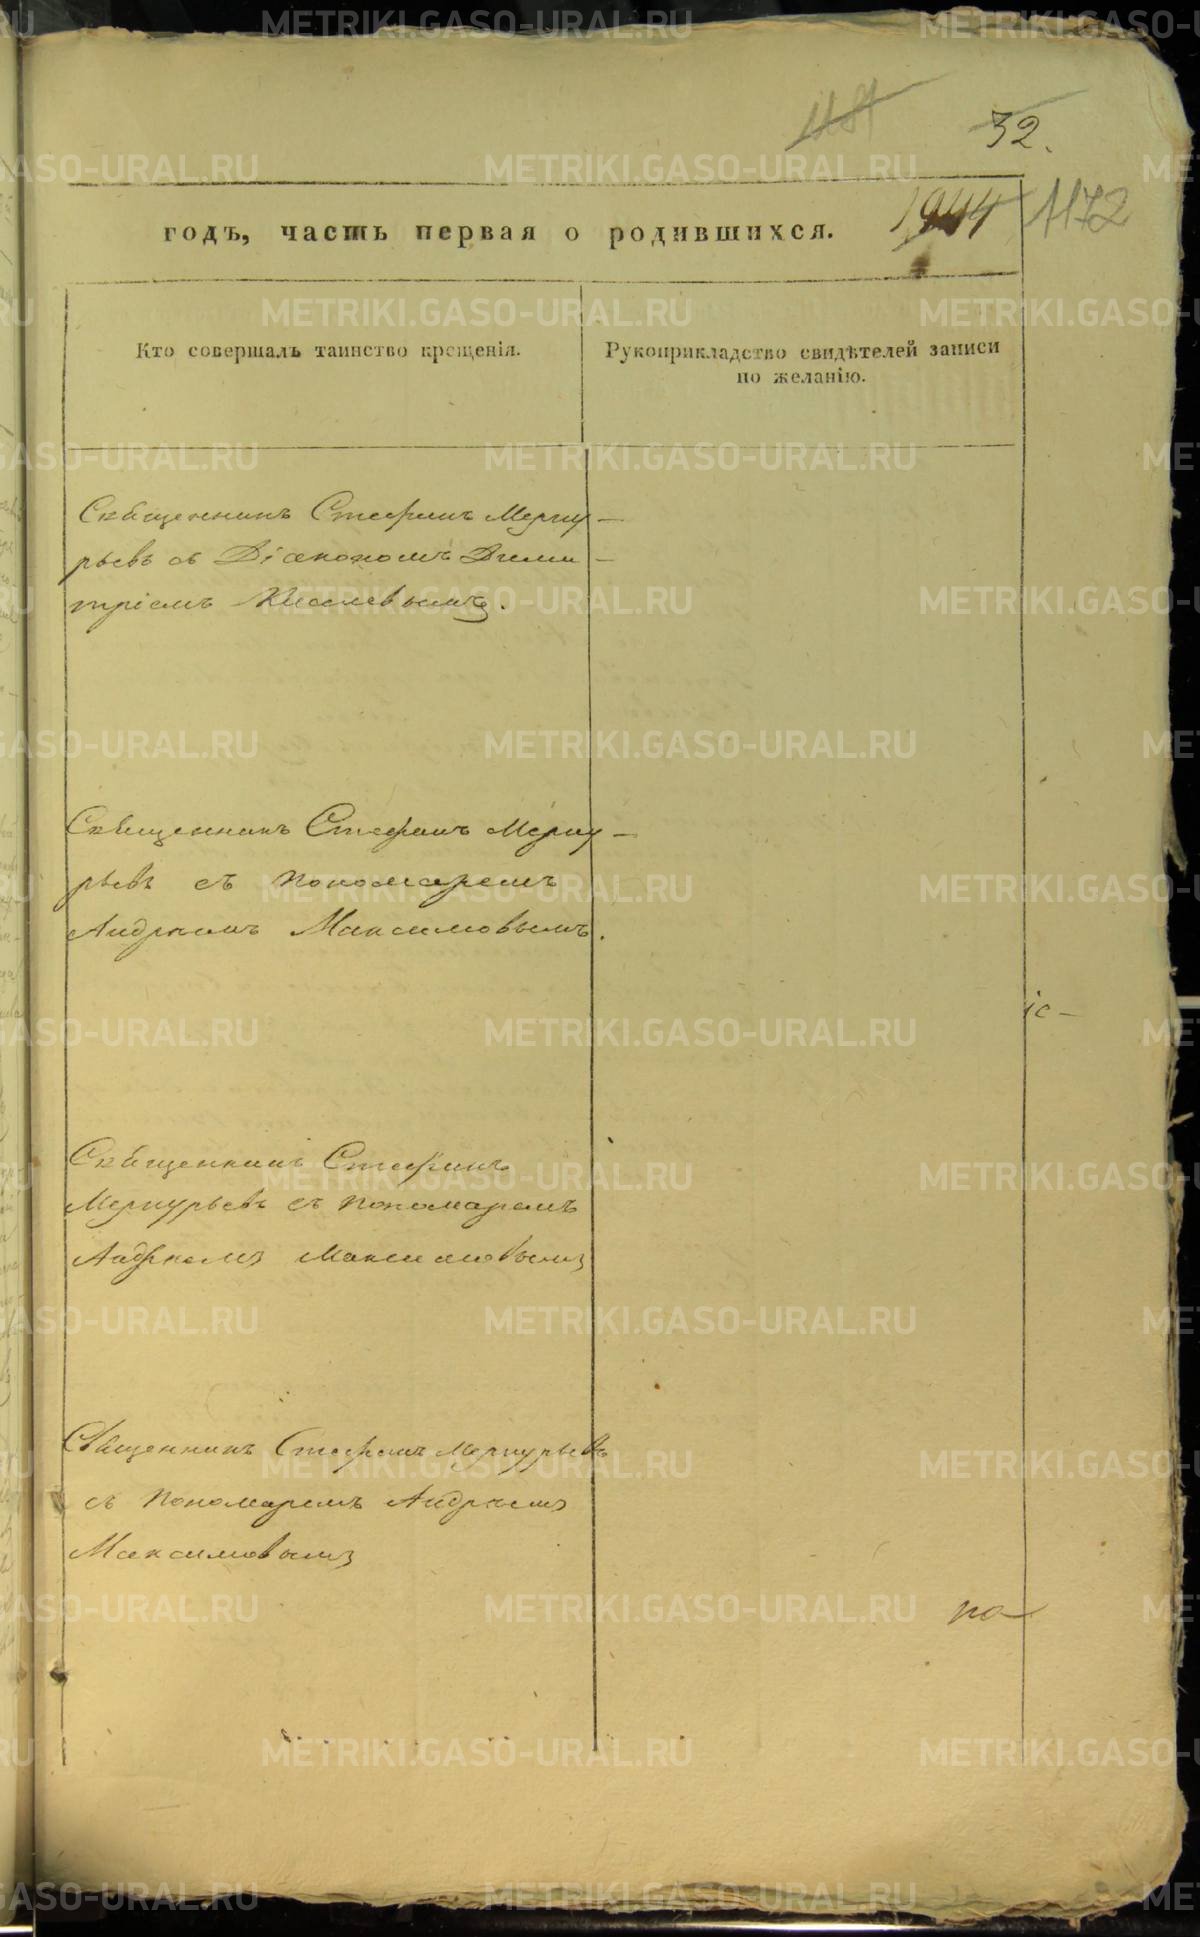 32.
1944 1172
годъ, часть первая о родившихся.
Кто совершалъ таинство крещенія.
Рукоприкладство свидѣтелей записи
по желанію.
Священникъ Стефанъ Мерку-
рьевъ съ Діакономъ Дими-
тріемъ Киселевымъ.
Священникъ Стефанъ Мерку-
рьевъ съ пономаремъ
Андреемъ Максимовымъ.
іс-
Священникъ Стефанъ
Меркурьевъ съ пономаремъ
Андреемъ Максимовымъ
Священникъ Стефанъ Меркурьевъ
съ пономаремъ Андреемъ
Максимовымъ
по-
METRIKI.GASO-URAL.RU